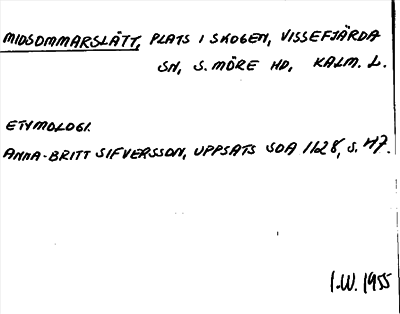 MIDSOMMARSLÅTT, PLATS I SKOGEN, VISSEFJÄRDA
SN, S. MÖRE HD, KALM. L.
ETYMOLOGI.
ANNA-BRITT SIFVERSSON, UPPSATS SOA 1628, S. 47.
I.W. 1955